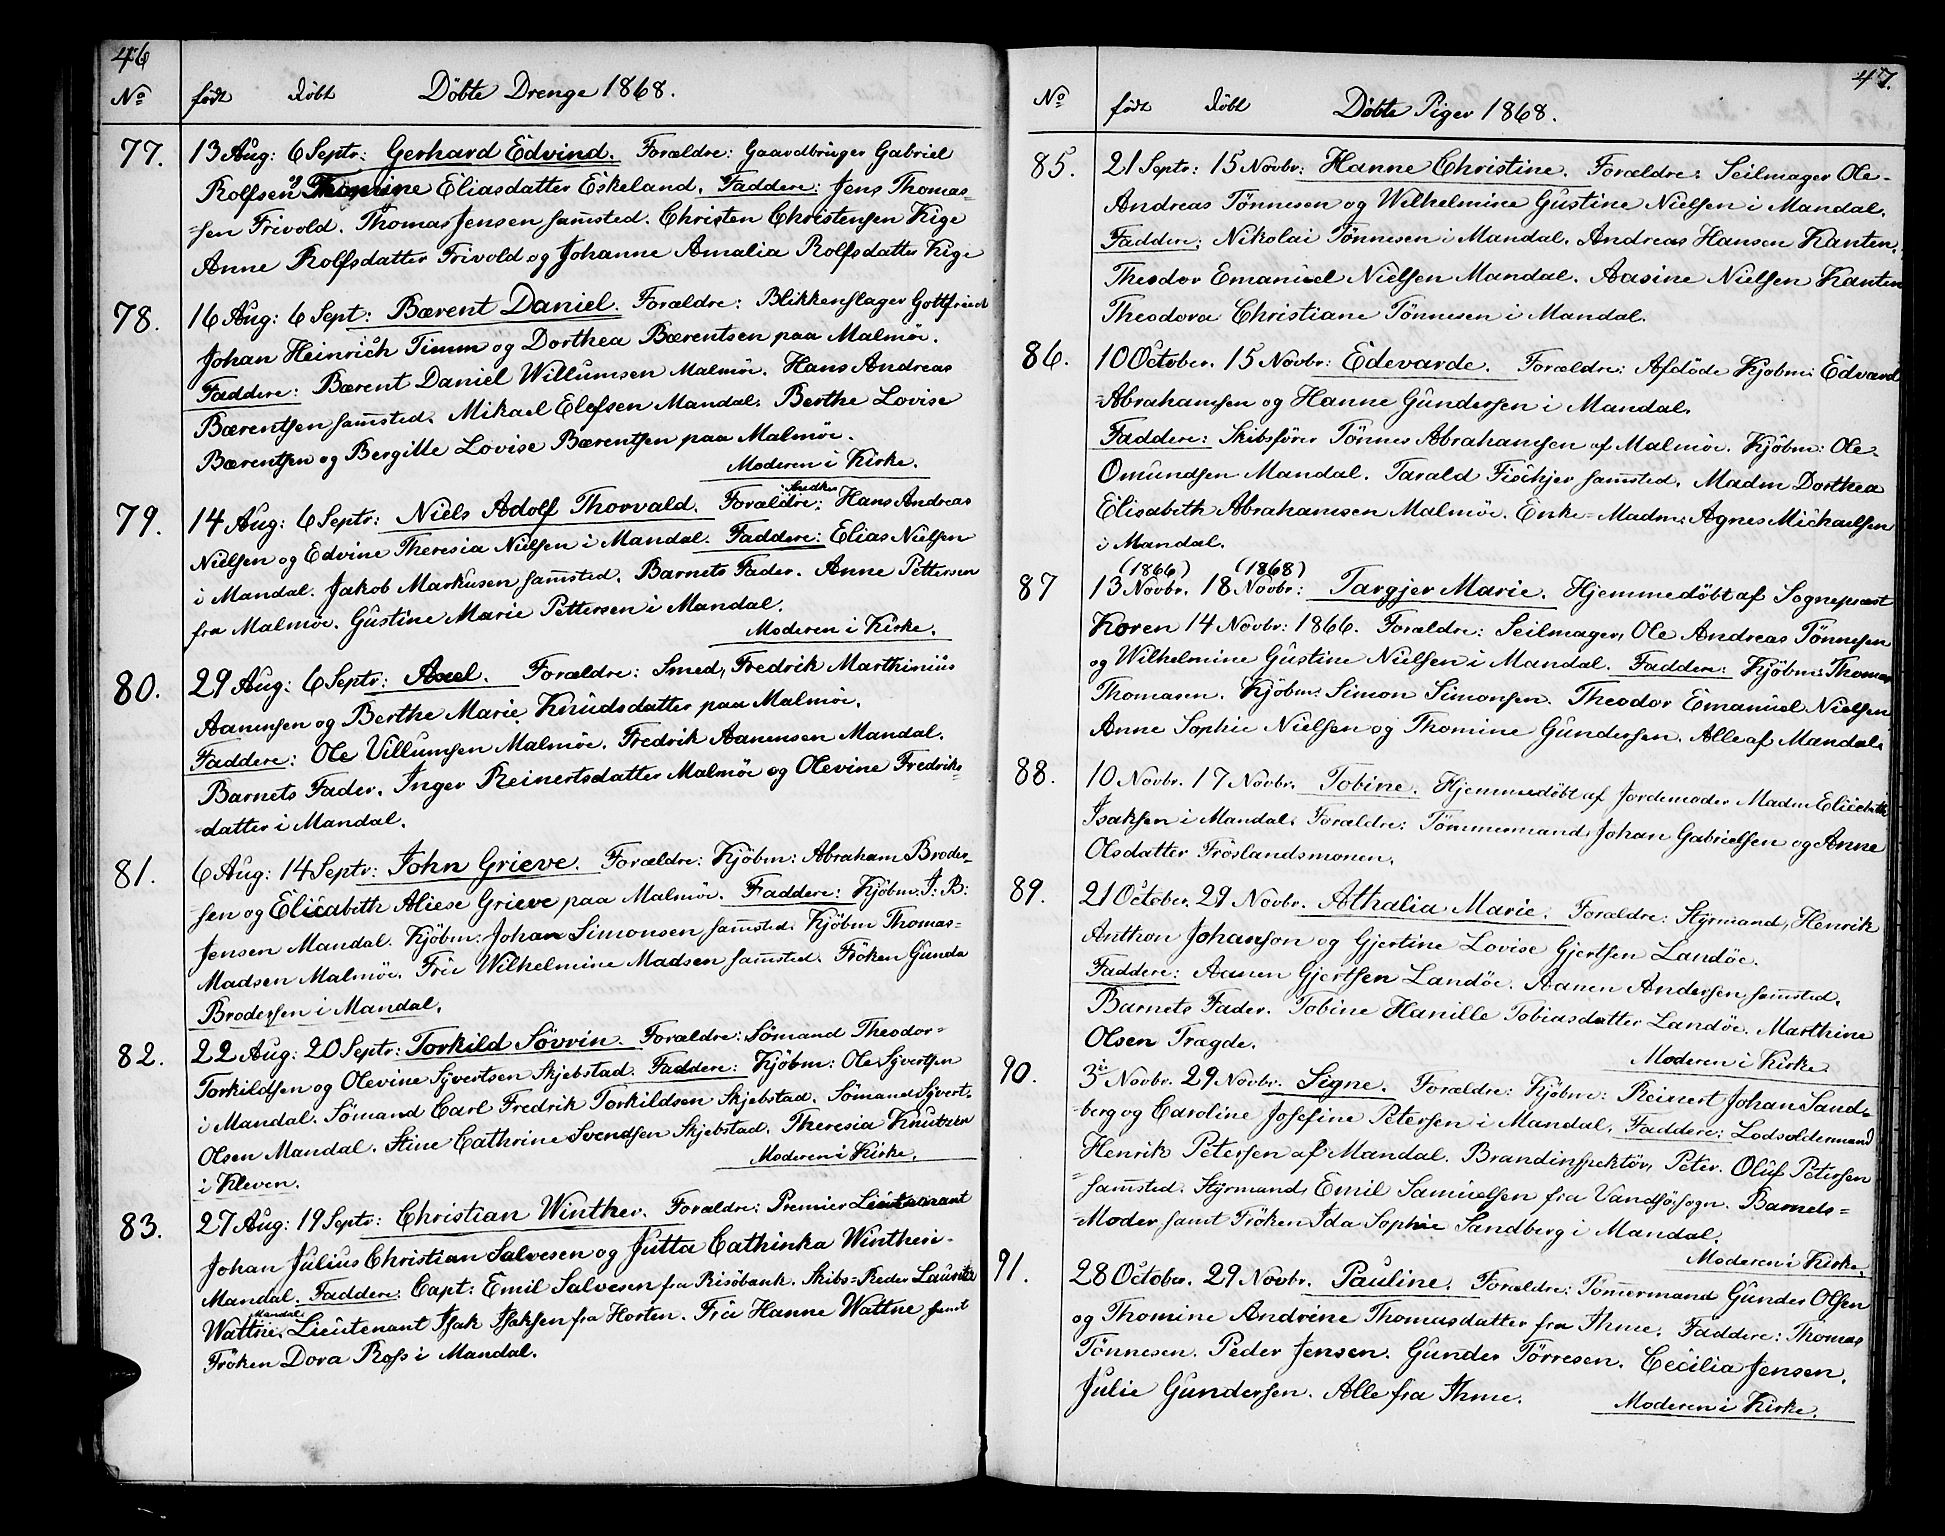 46
No født döbt Döbte Drenge 1868.
77. 13 Aug: 6 Septr: Gerhard Edvind. Forældre: Gaardbruger Gabriel
Rolfsen og Thomine Eliasdatter Eskeland. Faddere: Jens Thomas=
=sen Frivold. Thomas Jensen samsted. Christen Christensen Kige
Anne Rolfsdatter Frivold og Johanne Amalia Rolfsdatter Kige
78. 16 Aug: 6 Sept: Bærent Daniel. Forældre: Blikkenslager Gottfried
Johan Heinrich Timm og Dorthea Bærentsen paa Malmöe.
Faddere: Bærent Daniel Willumsen Malmöe. Hans Andreas
Bærentsen samsted. Mikael Elefsen Mandal. Berthe Lovise
Bærentsen og Bergitte Lovise Bærentsen paa Malmöe.
Moderen i Kirke.
79. 14 Aug: 6 Septr: Niels Adolf Thorvald. Forældre: Snedker Hans Andreas
Nielsen og Edvine Theresia Nielsen i Mandal. Faddere: Elias Nielsen
i Mandal. Jakob Markusen samsted. Barnets Fader. Anne Pettersen
fra Malmöe. Gustine Marie Pettersen i Mandal.
Moderen i Kirke.
80. 29 Aug: 6 Septr: Axel. Forældre: Smed, Fredrik Marthinius
Aanensen og Berthe Marie Knudsdatter paa Malmöe.
Faddere: Ole Villumsen Malmöe. Fredrik Aanensen Mandal.
Barnets Fader. Inger Reinertsdatter Malmöe og Olevine Fredriks-
-datter i Mandal.
81. 6 Aug: 14 Septr: John Grieve. Forældre: Kjöbm: Abraham Broder-
sen og Elisabeth Aliese Grieve paa Malmöe. Faddere: Kjöbm: J: B:
Jensen Mandal. Kjöbm: Johan Simonsen samsted. Kjöbm Thomas=
Madsen Malmöe. Fru Wilhelmine Madsen samsted. Fröken Gunda
Brodersen i Mandal.
82. 22 Aug: 20 Septr: Torkild Sövrin. Forældre: Sömand Theodor=
Torkildsen og Olevine Syvertsen Skjebstad. Faddere: Kjöbm: Ole Syvertsen
i Mandal. Sömand Carl Fredrik Torkildsen Skjebstad. Sömand Syvert.
Olsen Mandal. Stine Cathrine Svendsen Skjebstad. Theresia Knutzen
i Kleven.
Moderen i Kirke.
83. 27 Aug: 19 Septr: Christian Winther. Forældre: Premier Lieutenant
Johan Julius Christian Salvesen og Jutta Cathinka Winther i-
Mandal. Faddere: Capt: Emil Salvesen fra Risöbank. Skibs=Reder Lauritz
Wattne, Mandal Lieutenant Isak Isaksen fra Horten. Fru Hanne Wattne samt
Fröken Dora Ross i Mandal.
47.
No födt döbt Döbte Piger 1868.
85. 21 Septr: 15 Novbr: Hanne Christine. Forældre: Seilmager Ole-
Andreas Tönnesen og Wilhelmine Gustine Nielsen i Mandal.
Faddere: Nikolai Tönnesen i Mandal. Andreas Hansen Kanten.
Theodor Emanuel Nielsen Mandal. Aasine Nielsen Kanten
Theodora Christiane Tönnesen i Mandal.
86. 10 October. 15 Novbr: Edevarde. Forældre: Afdöde Kjöbm: Edvard
=Abrahamsen og Hanne Gundersen i Mandal.
Faddere: Skibsförer Tönnes Abrahamsen af Malmöe. Kjöbm: Ole-
Omundsen Mandal. Tarald Fischjer samsted. Madm Dorthea
Elisabeth Abrahamsen Malmöe. Enke=Madm: Agnes Michaelsen
i Mandal.
(1866) (1868)
87 13 Novbr. 18 Novbr: Targjer Marie. Hjemmedöbt af Sogneprest
Koren 14 Novbr: 1866. Forældre: Seilmager, Ole Andreas Tönnesen
og Wilhelmine Gustine Nielsen i Mandal. Faddere: Kjöbm: Thomas
Thomasen. Kjöbm: Simon Simonsen. Theodor Emanuel Nielsen
Anne Sophie Nielsen og Thomine Gundersen. Alle af Mandal.
88. 10 Novbr. 17 Novbr. Tobine. Hjemmedöbt af Jordemoder Madm Elisabeth
Isaksen i Mandal. Forældre: Tömmermand Johan Gabrielsen og Anne
Olsdatter Fröslandsmonen.
89. 21 October. 29 Novbr. Athalia Marie. Forældre: Styrmand, Henrik
Anthon Johanson og Gjertine Lovise Gjertsen Landöe.
Faddere: Aanen Gjertsen Landöe. Aanen Andersen samsted.
Barnets Fader. Tobine Hanille Tobiasdatter Landöe. Marthine
Olsen Trægde.
Moderen i Kirke
90. 3die Novbr. 29 Novbr. Signe. Forældre: Kjöbm: Reinert Johan Sand-
berg og Caroline Josefine Petersen i Mandal. Faddere: Lodsoldermand
Henrik Petersen af Mandal. Brandinspektör, Peter. Oluf Petersen
=samsted. Styrmand, Emil Samuelsen fra Vandsö sogn. Barnets=
=Moder samt Fröken Ida Sophie Sandberg i Mandal.
Moderen i Kirke.
91. 28 October. 29 Novbr. Pauline. Forældre: Tömmermand Gunder Olsen
og Thomine Andrine Thomasdatter fra Ihme. Faddere: Thomas
Tönnesen. Peder Jensen. Gunder Törresen. Cecilia Jensen.
Julie Gundersen. Alle fra Ihme.
Moderen i Kirke.